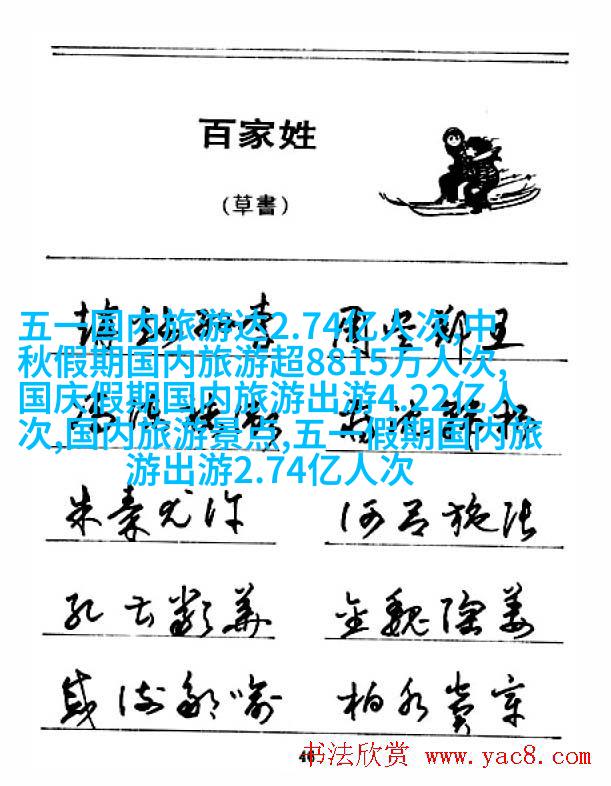 百家姓
(草書)
五一国内旅游达2.74亿人次,中
秋假期国内旅游超8815万人次,
国庆假期国内旅游出游4.22亿人
次,国内旅游景点,五一假期国内旅
游出游2.74亿人次
赵钱孙李 周吴郑王
冯陈褚卫 蒋沈韩杨
朱秦尤许 何吕施张
孔曹严华 金魏陶姜
戚谢邹喻 柏水窦章
46
书法欣赏 www.yac8.com